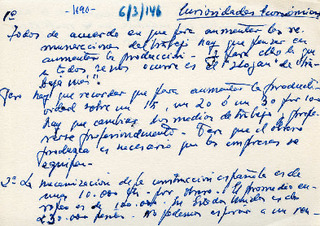 1º -1690- 6/3/146 Curiosidades económicas
Todos de acuerdo en que para aumentar las re-
muneraciones del trabajo hay que pensar en
aumentar la producción. Y para ello lo que
a todos se nos ocurre es el "slogan" de "tra-
bajo más"
Pero hay que recordar que para aumentar la producti-
vidad sobre un 15, un 20 ó un 30 por 100
hay que cambiar los medios de trabajo y
profesionalmente. Para que el obrero
produzca es necesario que las empresas se
equipen.
2º La mecanización de la construcción española es de
unas 10.000 pts. por obrero. El promedio eu-
ropeo es de 100.000. En Estados Unidos es de
230.000 pesetas. No podemos esperar a un